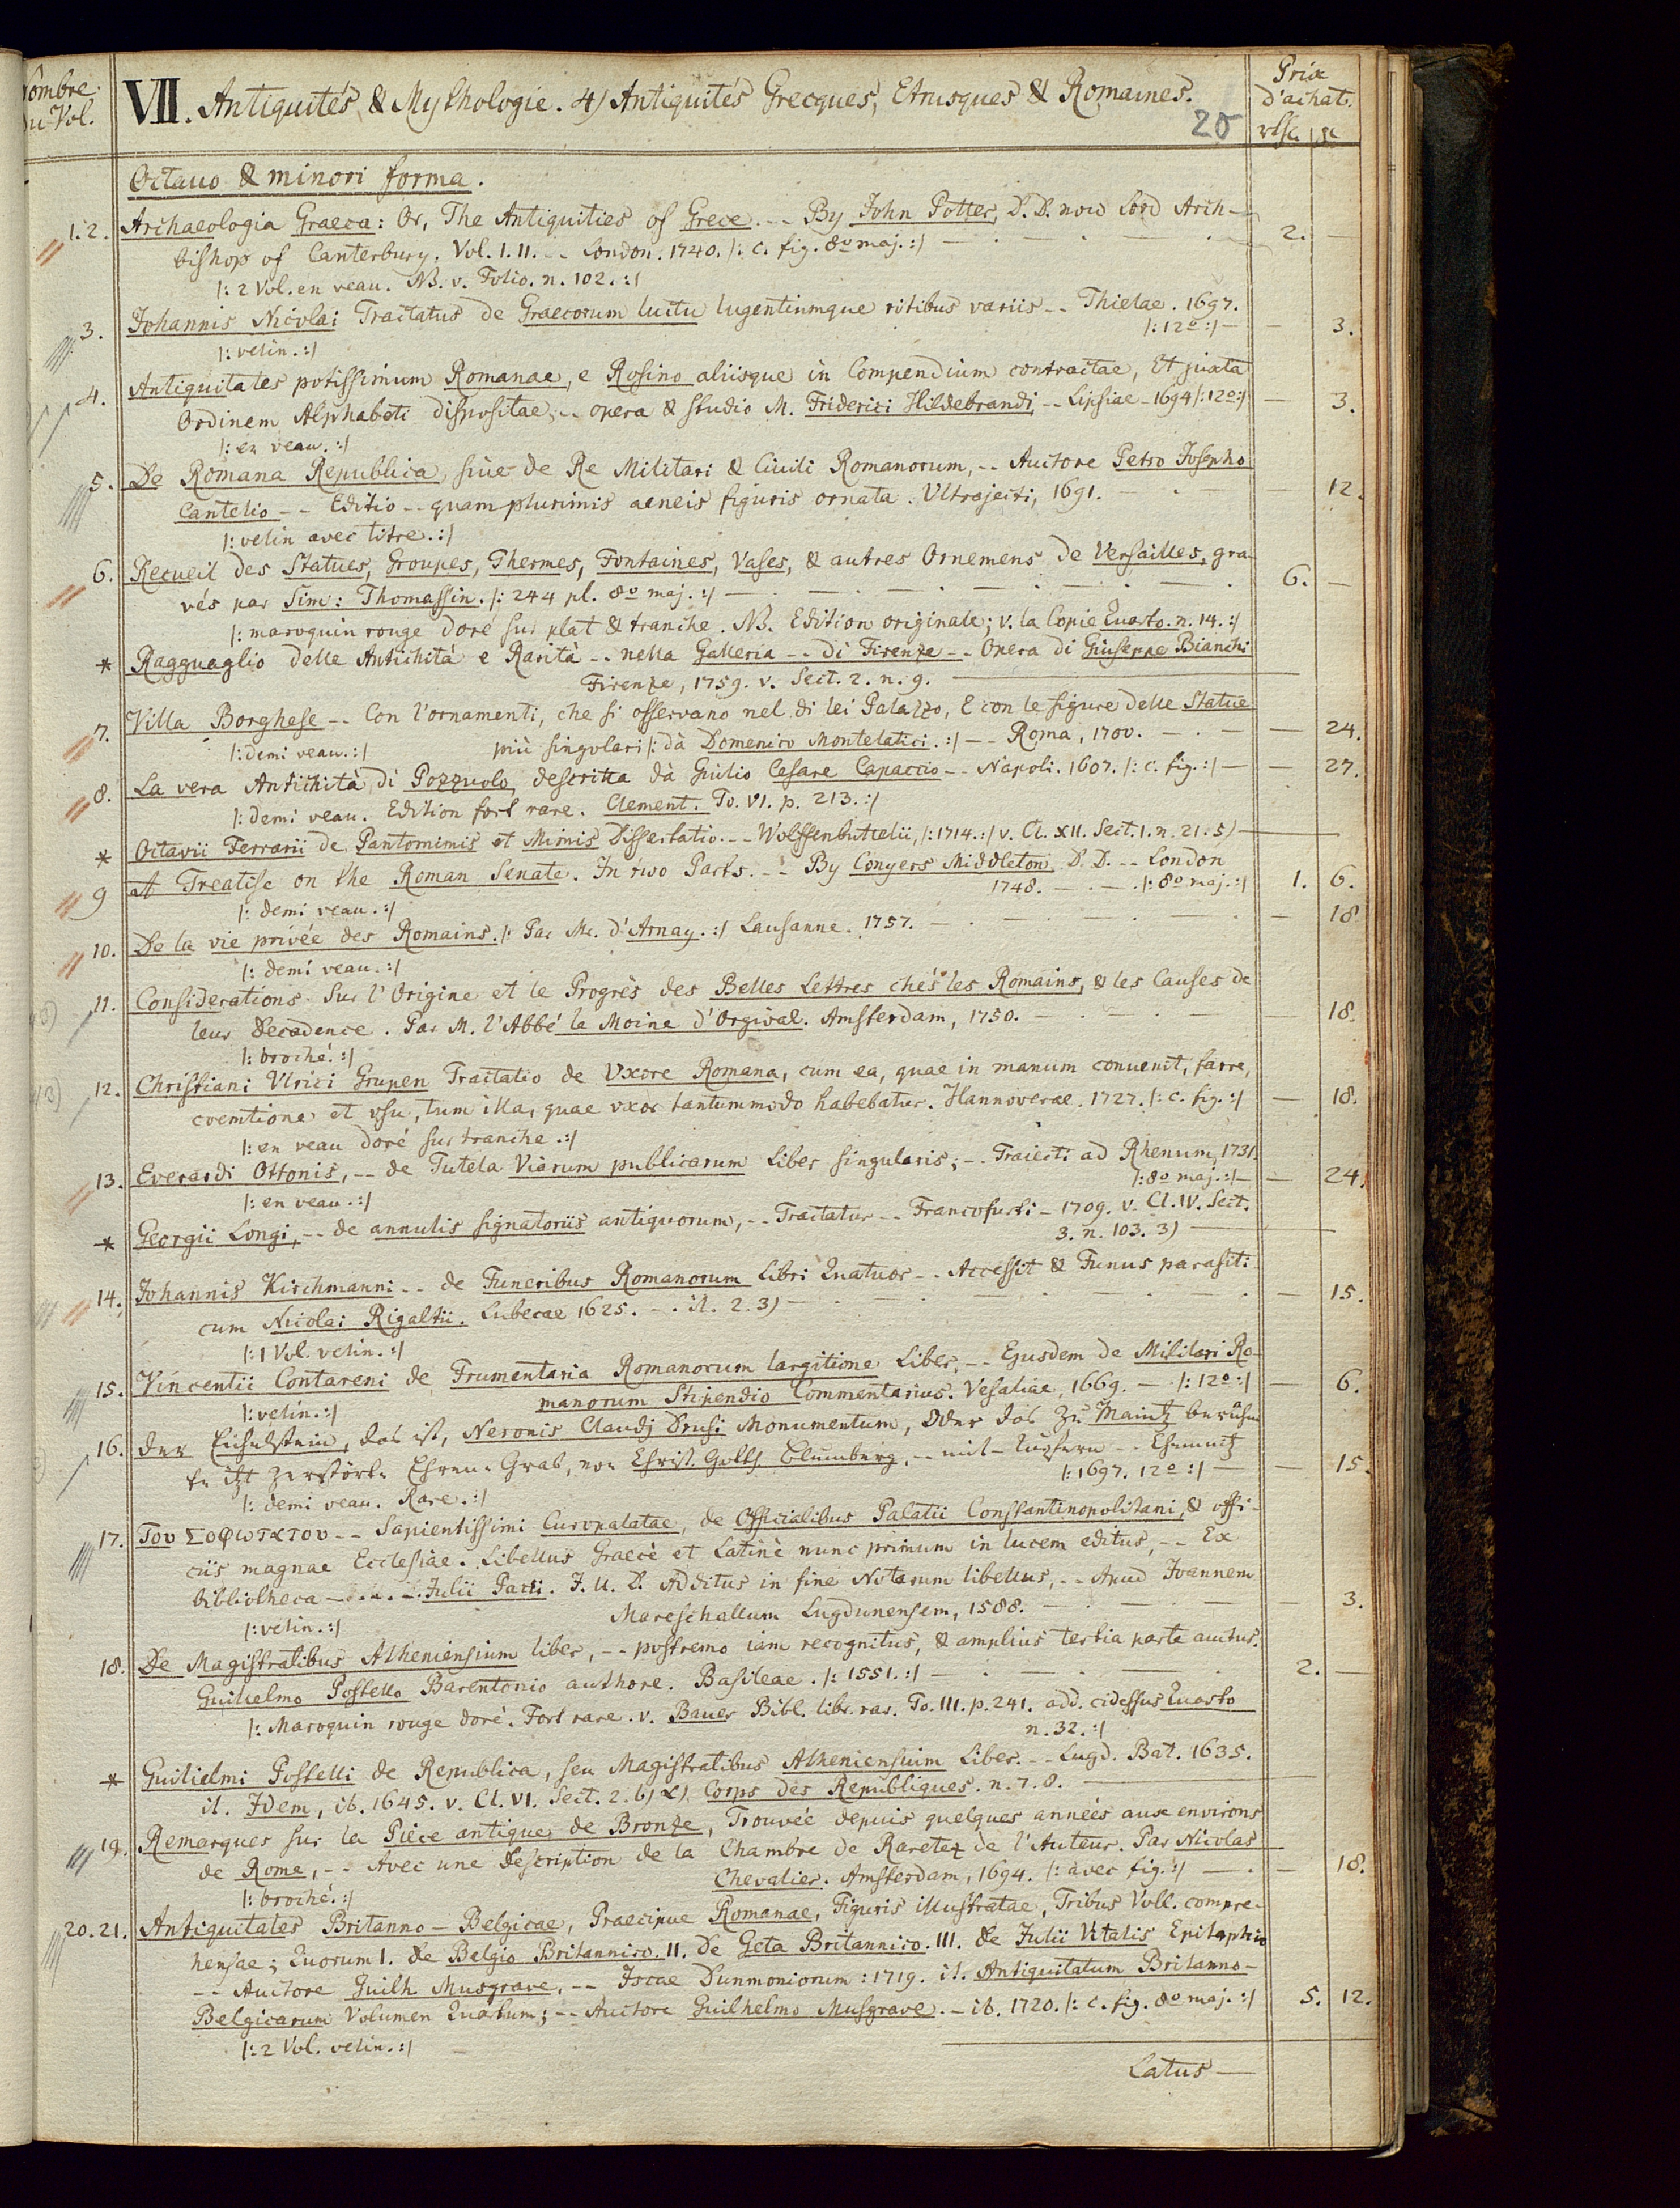 Nombre
du Vol.
VII. Antiquités & Mythologie. 4) Antiquités Grecques, Etrusques & Romaines.
20
Prix
d'achat.
Octavo & minori forma.
1. 2. Archaeologia Graeca: Or, The Antiquities of Grece. -- By John Potter, D. D. now Lord Arch-
bishop of Canterbury. Vol. I. II. -- London. 1740. /: c. fig. 8º maj. :/ — 2. —
/: 2 Vol. en veau. NB. v. Folio. n. 102. :/
3. Johannis Nicolai Tractatus de Graecorum luctu lugentiumque ritibus variis -- Thielae. 1697.
/: 12º :/ — — 3.
/: velin. :/
4. Antiquitates potissimum Romanae, e Rosino aliisque in Compendium contractae, Et juxta
Ordinem Alphabeti dispositae, -- opera & studio M. Friderici Hildebrandi, -- Lipsiae - 1694 /: 12º :/ — 3.
/: en veau. :/
5. De Romana Republica, sive de Re Militari & Civili Romanorum, -- Auctore Petro Josepho
Cantelio -- Editio -- quam plurimis aeneis figuris ornata. Ultrajecti, 1691. — 12.
/: velin avec titre. :/
6. Recueil des Statues, Groupes, Thermes, Fontaines, Vases, & autres Ornemens de Versailles, gra-
vés par Sim: Thomassin. /: 244 pl. 8º maj. :/ — 6. —
/: maroquin rouge doré sur plat & tranche. NB. Edition originale; v. la Copie Quarto. n. 14. :/
* Ragguaglio delle Antichità e Rarità -- nella Galleria -- di Firenze -- Opera di Giuseppe Bianchi
Firenze, 1759. v. Sect. 2. n. 9. —
7. Villa Borghese -- Con l'ornamenti, che si osservano nel di lei Palazzo, E con le figure delle Statue
/: demi veau. :/ più singolari /: dà Domenico Montelatici. :/ -- Roma, 1700. — — 24.
8. La vera Antichità di Pozzuolo, descritta dà Giulio Cesare Capaccio -- Napoli. 1607. /: c. fig. :/ — — 27.
/: demi veau. Edition fort rare. Clement. To. VI. p. 213. :/
* Octavii Ferrarii de Pantomimis et Mimis Dissertatio. -- Wolffenbuttelii, /: 1714. :/ v. Cl. XII. Sect. 1. n. 21. 5) —
9 A Treatise on the Roman Senate. In two Parts. -- By Conyers Middleton D. D. -- London
1748. — /: 8º maj. :/ 1. 6.
/: demi veau. :/
10. De la vie privée des Romains. /: Par Mr. d'Arnay. :/ Lausanne. 1757. — — 18.
/: demi veau. :/
11. Considerations sur l'Origine et le Progrès des Belles Lettres chés les Romains, & les Causes de
leur Decadence. Par M. l'Abbé le Moine d'Orgival. Amsterdam, 1750. — — 18.
/: broché. :/
12. Christiani Vlrici Grupen Tractatio de Vxore Romana, cum ea, quae in manum convenit, farre,
coemtione et vsu, tum illa, quae vxor tantummodo habebatur. Hannoverae. 1727. /: c. fig. :/ — 18.
/: en veau doré sur tranche. :/
13. Everardi Ottonis, -- de Tutela Viarum publicarum Liber singularis; -- Traiecti ad Rhenum, 1731.
/: 8º maj. :/ — — 24.
/: en veau. :/
* Georgii Longi, -- de annulis signatoriis antiquorum, -- Tractatus -- Francofurti - 1709. v. Cl. IV. Sect.
3. n. 103. 3) —
14. Johannis Kirchmanni -- de Funeribus Romanorum Libri Quatuor -- Accessit & Funus parasiti-
cum Nicolai Rigaltii. Lubecae 1625. — it. 2. 3) — — 15.
/: 1 Vol. velin. :/
15. Vincentii Contareni de Frumentaria Romanorum largitione Liber, -- Ejusdem de Militari Ro-
manorum Stipendio Commentarius. Vesaliae, 1669. — /: 12º :/ — 6.
/: velin. :/
16. Der Eichelstein, das ist, Neronis Claudj Drusi Monumentum, Oder das zu Maintz berühm
te itzt zerstörte Ehren-Grab, von Christ. Gotth. Blumberg, -- mit Kupfern -- Chemnitz
/: 1697. 12º :/ — — 15.
/: demi veau. Rare. :/
17. Του Σοφωτατου -- Sapientissimi Curopalatae, de Officialibus Palatii Constantinopolitani, & offi-
ciis magnae Ecclesiae. Libellus Graecè et Latinè nunc primum in lucem editus, -- Ex
bibliotheca - - - - Julii Pacii. J. U. D. Additus in fine Notarum libellus, -- Apud Joannem
/: velin. :/ Mareschallum Lugdunensem, 1588. — — 3.
18. De Magistratibus Atheniensium liber, -- postremo iam recognitus, & amplius tertia parte auctus.
Guilielmo Postello Barentonio authore. Basileae. /: 1551. :/ — 2. —
/: Maroquin rouge doré. Fort rare. v. Bauer Bibl. libr. rar. To. III. p. 241. add. cidessus Quarto
n. 32. :/
* Guilielmi Postelli de Republica, seu Magistratibus Atheniensium Liber. -- Lugd. Bat. 1635.
it. Idem, ib. 1645. v. Cl. VI. Sect. 2. b) α) Corps des Republiques. n. 7. 8. —
19. Remarques sur la Pièce antique de Bronze, Trouvée depuis quelques années aux environs
de Rome, -- Avec une Description de la Chambre de Raretez de l'Auteur. Par Nicolas
Chevalier. Amsterdam, 1694. /: avec fig. :/ — — 18.
/: broché. :/
20. 21. Antiquitates Britanno-Belgicae, Praecipue Romanae, Figuris illustratae, Tribus Voll. compre-
hensae; Quorum I. de Belgio Britannico. II. De Geta Britannico. III. de Julii Vitalis Epitaphio
-- Auctore Guilh. Musgrave, -- Iscae Dunmoniorum: 1719. it. Antiquitatum Britanno-
Belgicarum Volumen Quartum; -- Auctore Guilhelmo Musgrave. - ib. 1720. /: c. fig. 8º maj. :/ 5. 12.
/: 2 Vol. velin. :/
Latus —